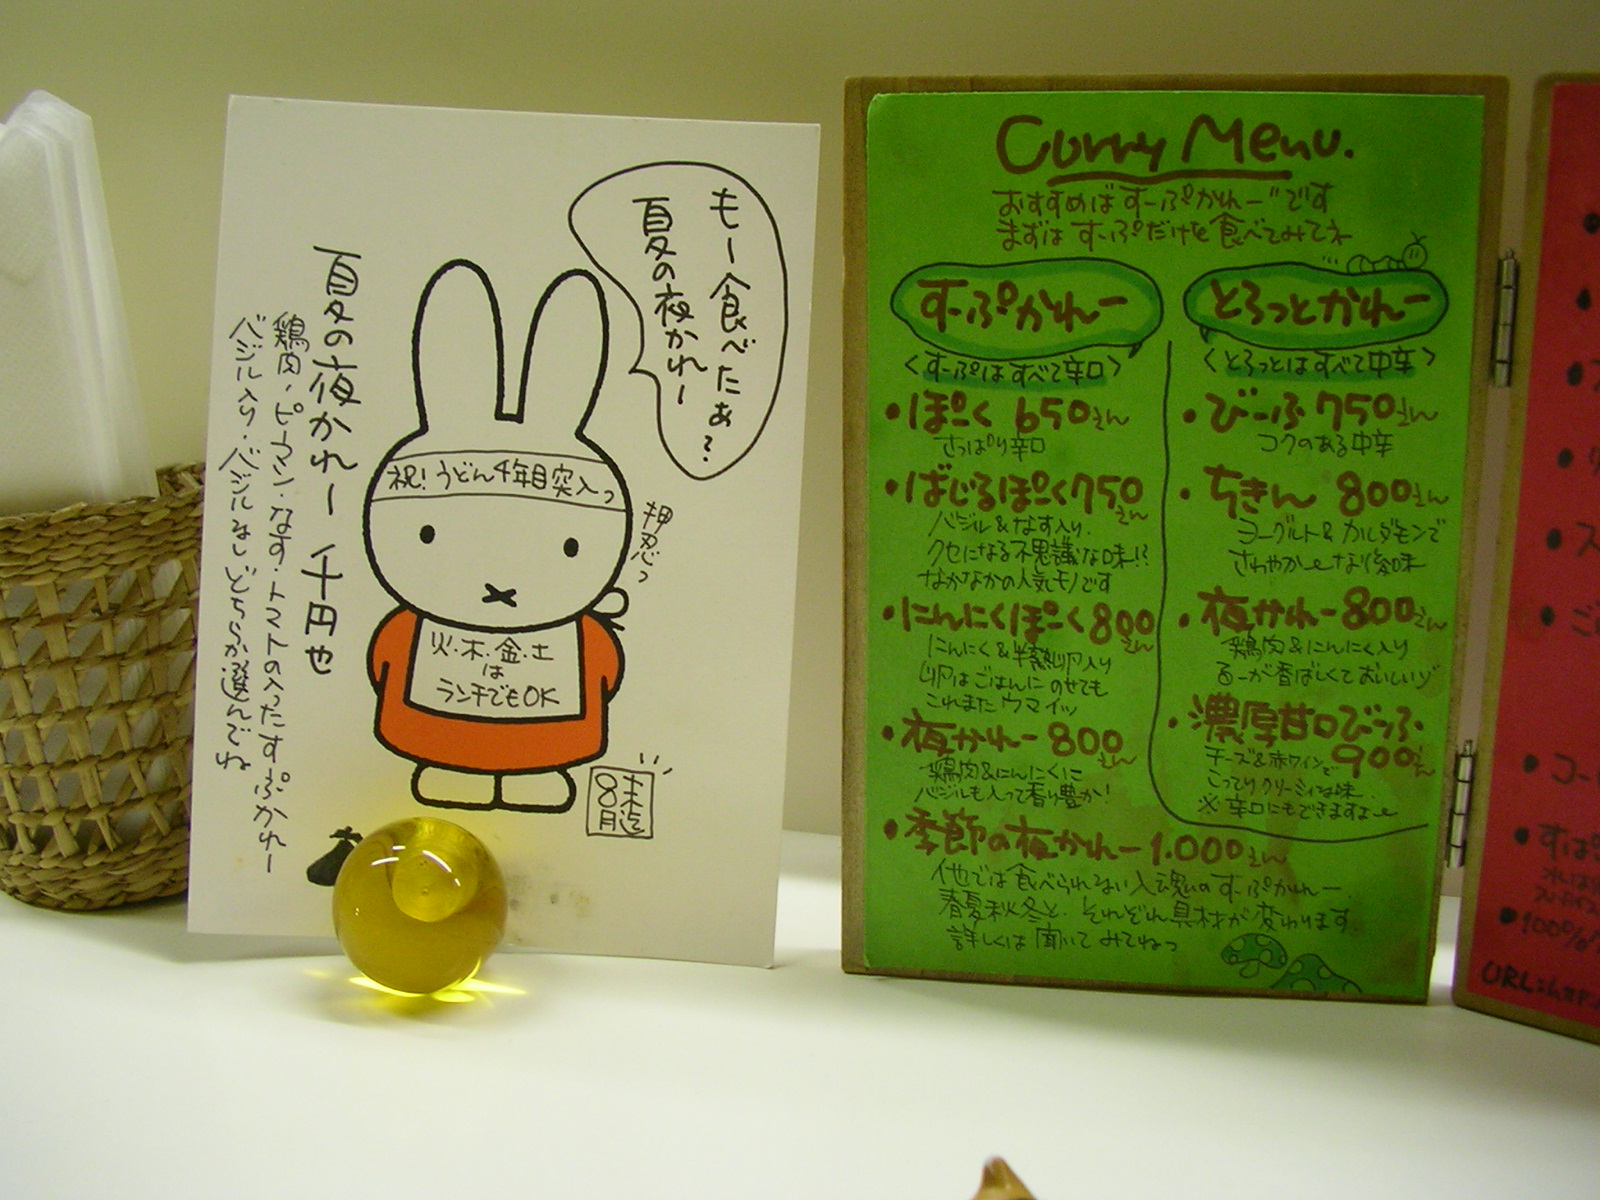 もー食べたぁ?
夏の夜かれー
祝!うどん4年目突入っ
押忍っ
火・木・金・土
は
ランチでもOK
8月迄
夏の夜かれー 千円也
鶏肉・ピーマン・なす・トマトの入ったすーぷかれー
バジル入り・バジルなしどちらか選んでね
Curry Menu.
おすすめは"すーぷかれー"です
まずは すーぷだけを食べてみてネ
すーぷかれー
<すーぷはすべて辛口>
・ぽーく 650えん
さっぱり辛口
・ばじるぽーく750えん
バジル&なす入り.
クセになる不思議な味!?
なかなかの人気モノです
・にんにくぽーく800えん
にんにく&半熟卵入り
卵はごはんに のせても
これまたウマイッ
・夜かれー 800えん
鶏肉&にんにくに
バジルも入って香り豊か!
・季節の夜かれー 1.000えん
他では食べられない入魂のすーぷかれー.
春夏秋冬と、それぞれ具材が変わります
詳しくは聞いてみてねっ
とろっとかれー
<とろっとはすべて中辛>
・びーふ 750えん
コクのある中辛
・ちきん 800えん
ヨーグルト&カルダモンで
さわやかーな後味
・夜かれー 800えん
鶏肉&にんにく入り
るーが香ばしくておいしいゾ
・濃厚甘口びーふ
900えん
チーズ&赤ワインで
こってりクリーミィな味.
※辛口にもできますよー
・100%
URL: